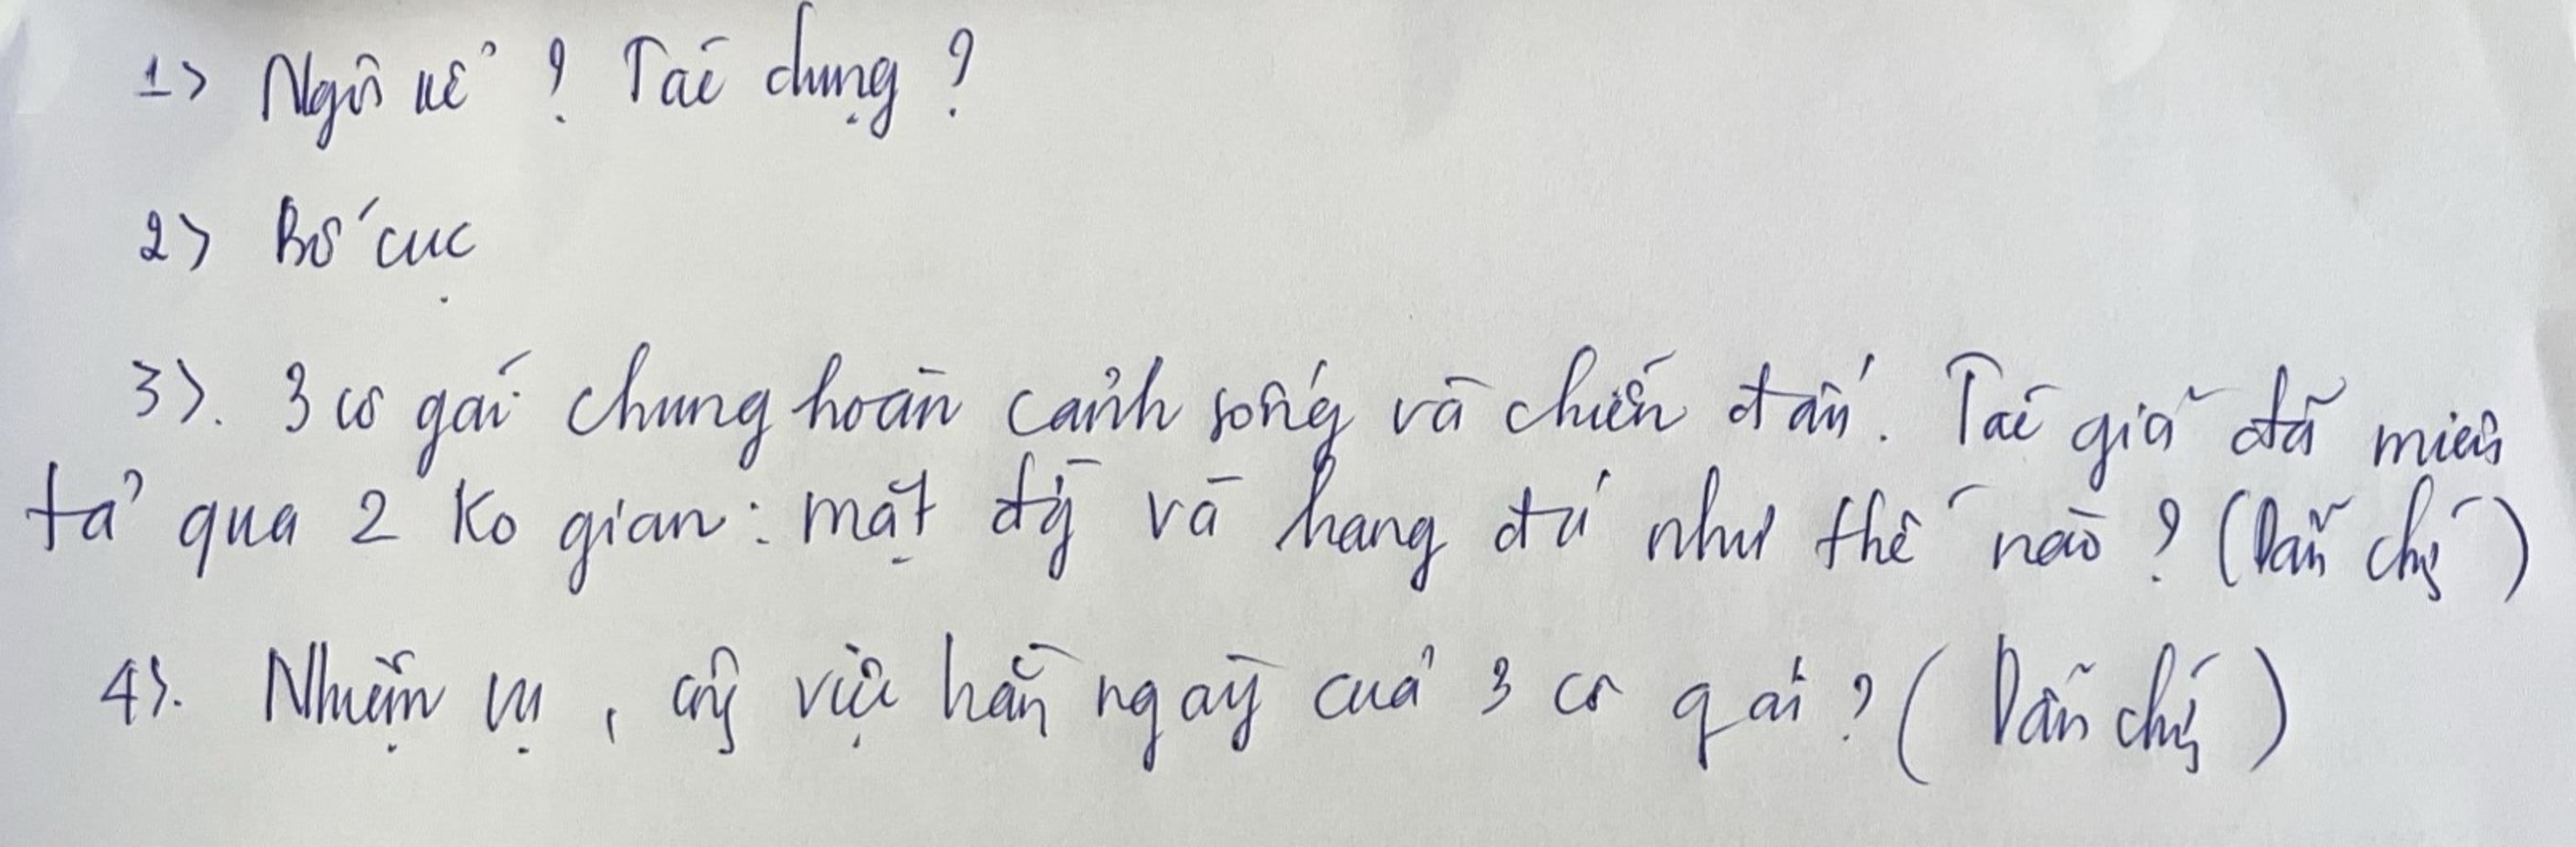 1> Ngôi kể? Tác dụng?
2> Bố cục
3>. 3 cô gái chung hoàn cảnh sống và chiến đấu. Tác giả đã miêu
tả qua 2 ko gian: mặt đg và hang đá như thế nào? (Dẫn chứg)
4>. Nhiệm vụ, côg việc hằng ngày của 3 cô gái? (Dẫn chứg)